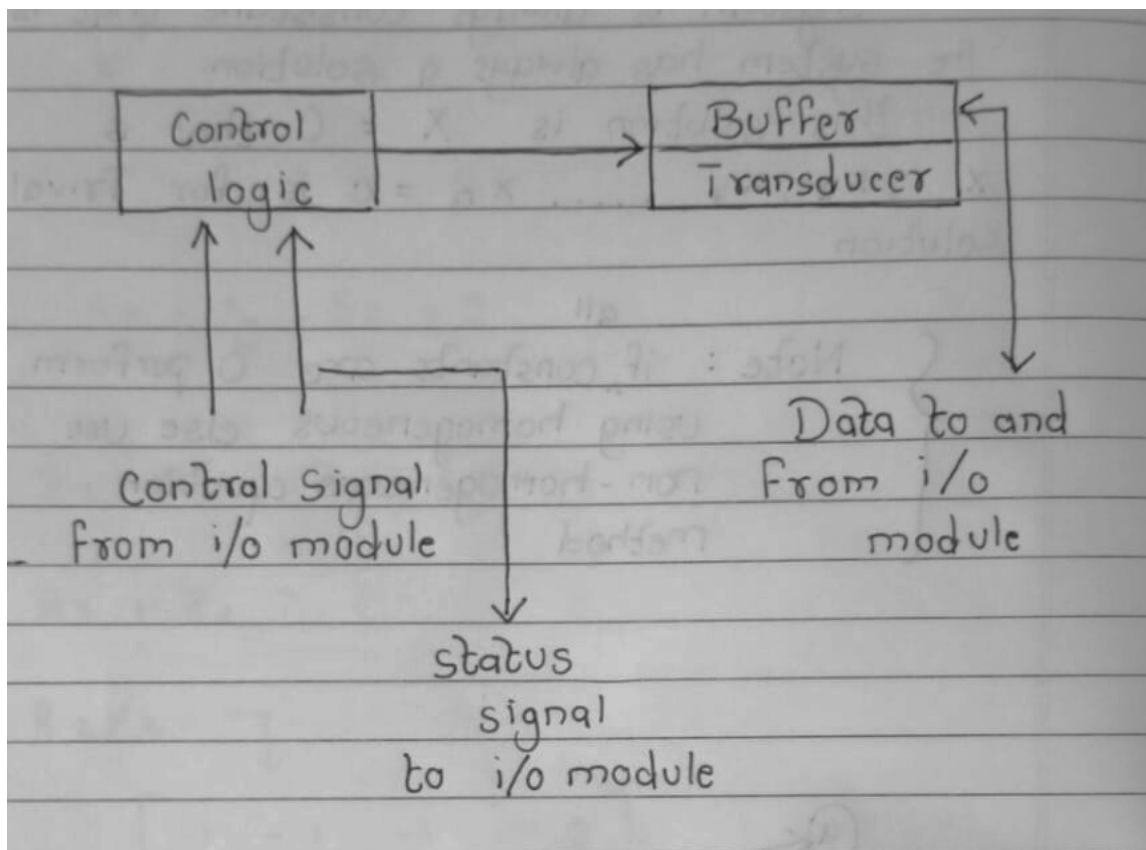 Control
logic
Buffer
Transducer
Control Signal
from i/o module
Data to and
From i/o
module
status
signal
to i/o module